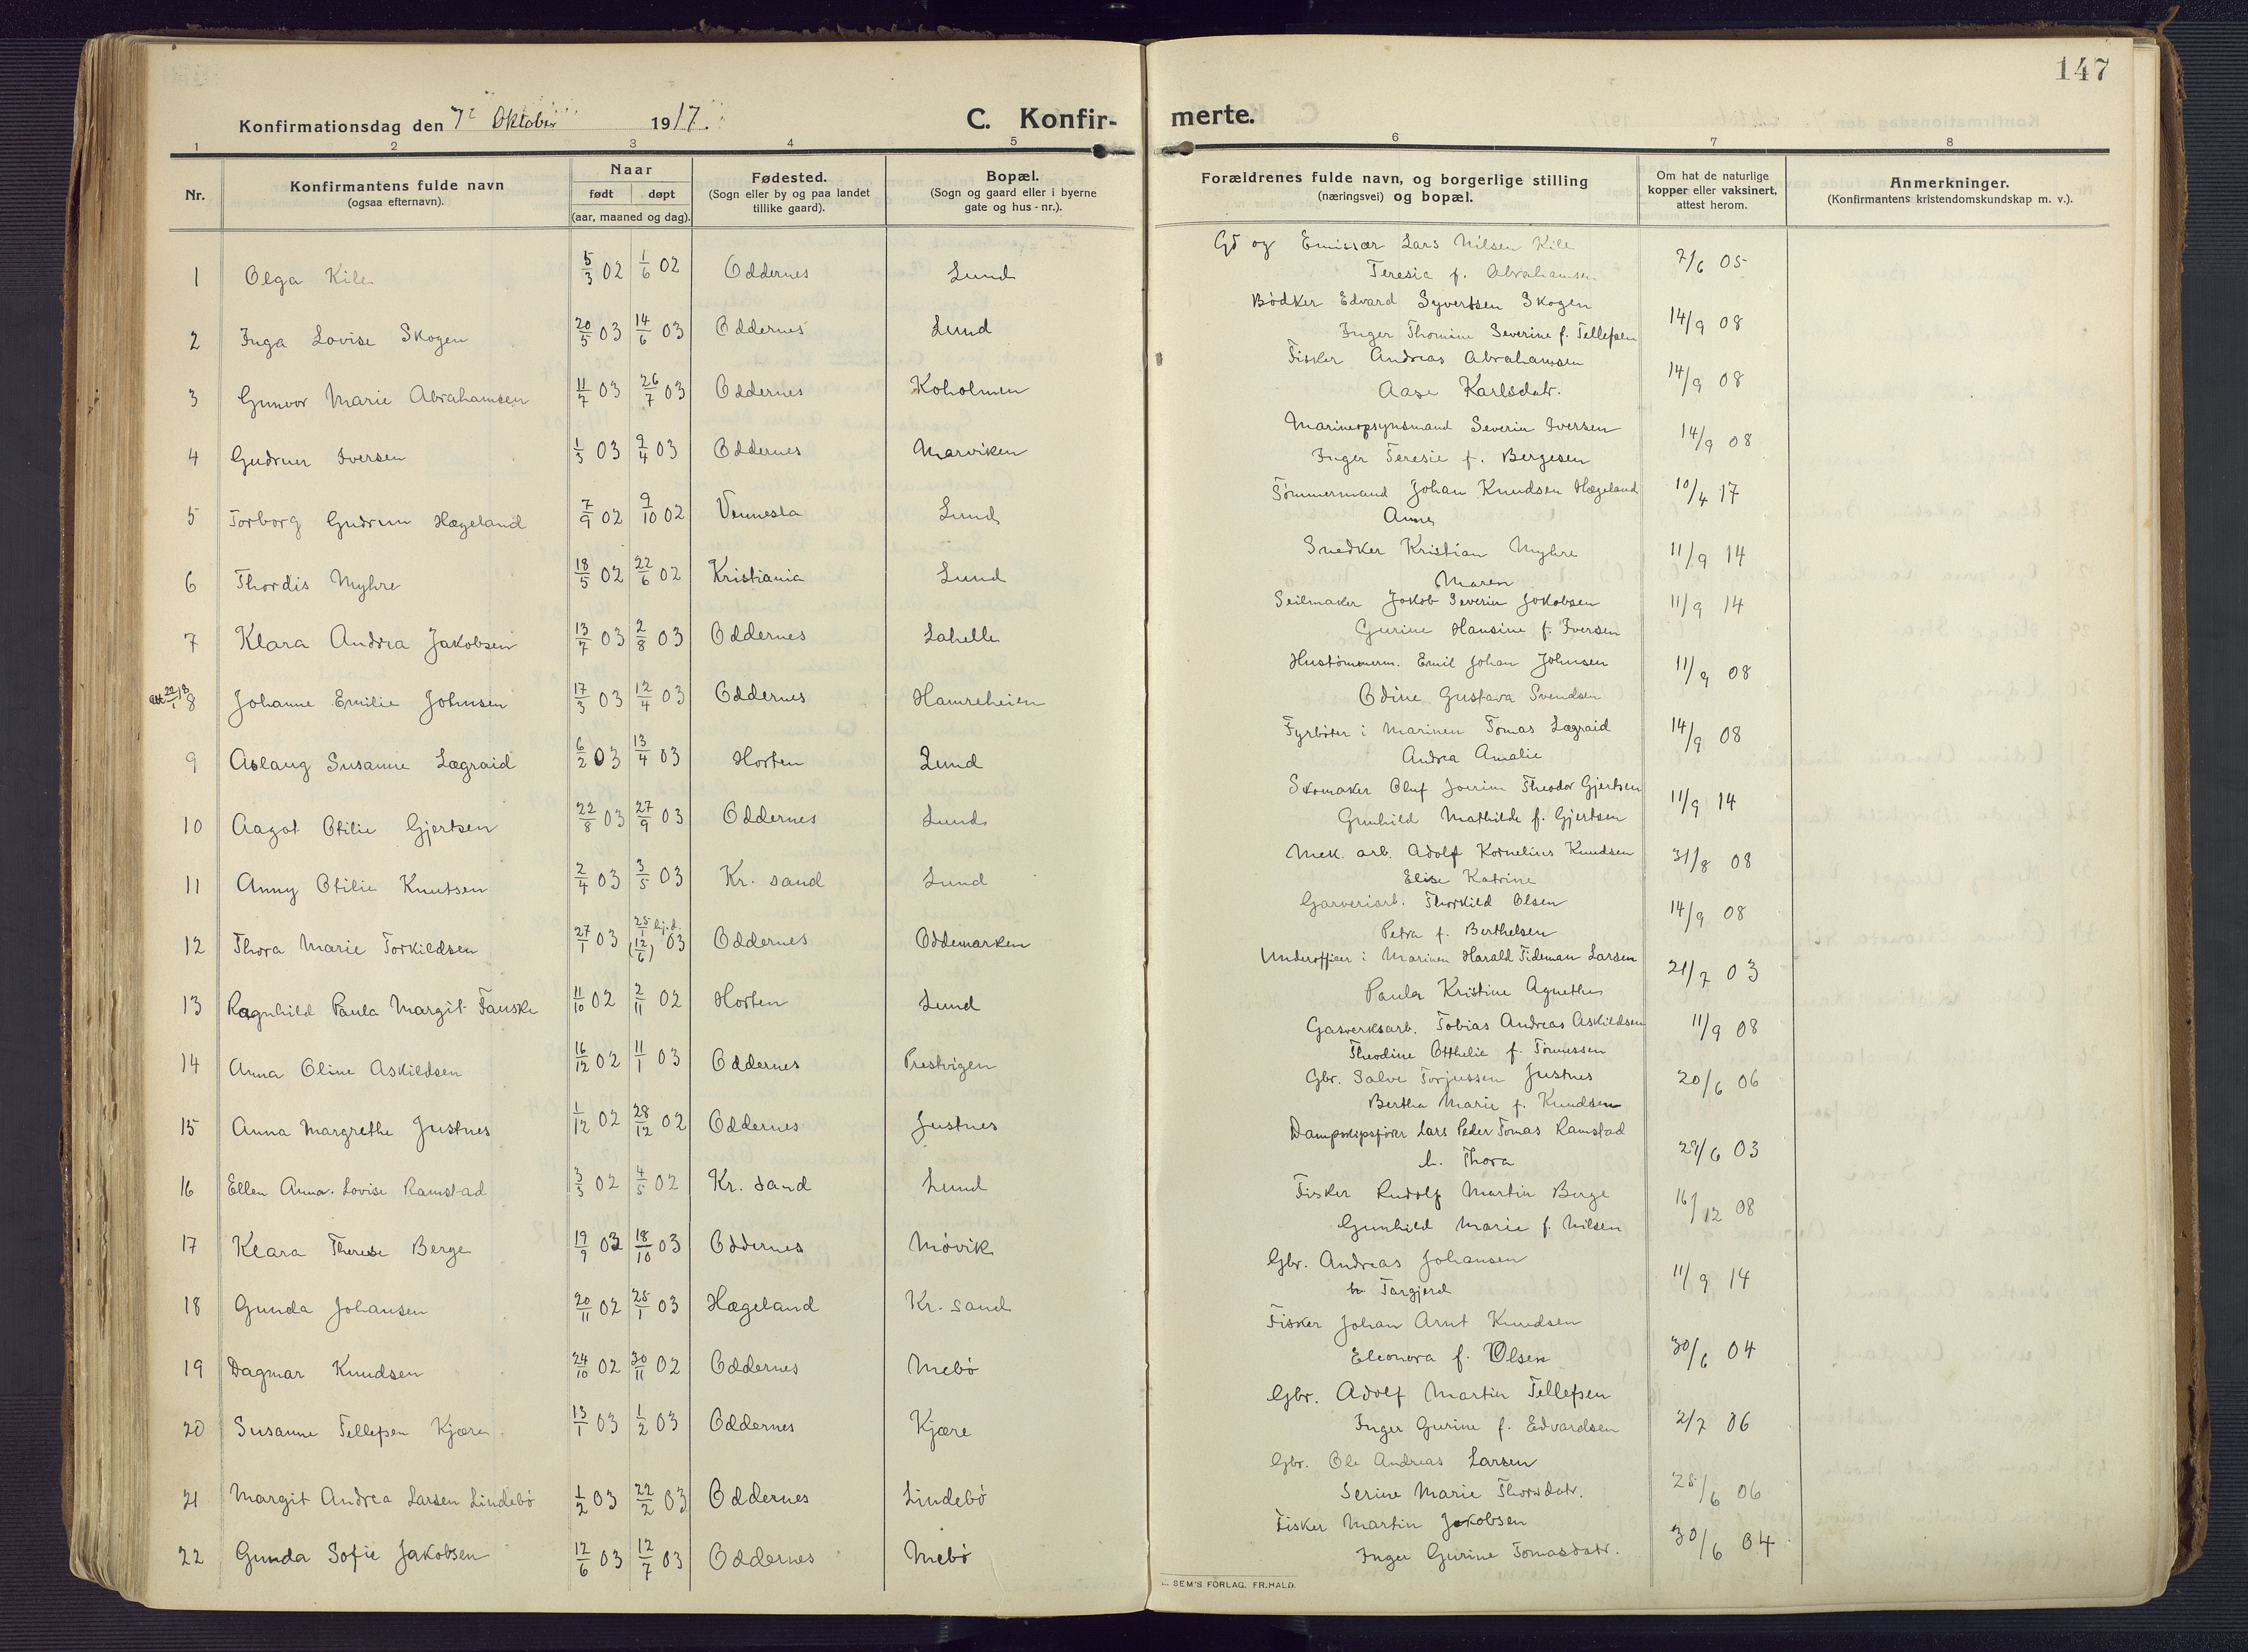 147
Konfirmationsdag den 7de Oktober 1917.
C. Konfirmerte.
1 2 3 4 5 6 7 8
Nr.
Konfirmantens fulde navn
(ogsaa efternavn).
Naar
født døpt
(aar, maaned og dag).
Fødested.
(Sogn eller by og paa landet
tillike gaard).
Bopæl.
(Sogn og gaard eller i byerne
gate og hus-nr.).
Forældrenes fulde navn, og borgerlige stilling
(næringsvei) og bopæl.
Om hat de naturlige
kopper eller vaksinert,
attest herom.
Anmerkninger.
(Konfirmantens kristendomskundskap m. v.).
1 Olga Kile 5/3 02 1/6 02 Oddernes Lund Gd og Emissær Lars Nilsen Kile 7/6 05
Teresia f. Abrahamsen
2 Inga Lovise Skogen 20/5 03 14/6 03 Oddernes Lund Bødker Edvard Syvertsen Skogen 14/9 08
Inger Thomine Severine f. Tellefsen
3 Gunvor Marie Abrahamsen 11/7 03 26/7 03 Oddernes Koholmen Fisker Andreas Abrahamsen 14/9 08
Aase Karlsdatr.
4 Gudrun Iversen 1/3 03 9/4 03 Oddernes Marviken Marineopsynsmand Severin Iversen 14/9 08
Inger Teresie f. Bergesen
5 Torborg Gudrun Hægeland 7/9 02 9/10 02 Vennesla Lund Tømmermand Johan Knudsen Hægeland 10/4 17
Anne
6 Thordis Myhre 18/5 02 22/6 02 Kristiania Lund Snedker Kristian Myhre 11/9 14
Maren
7 Klara Andrea Jakobsen 13/7 03 2/8 03 Oddernes Lahelle Seilmaker Jakob Severin Jakobsen 11/9 14
Gurine Hansine f. Iversen
8 Johanne Emilie Johnsen 17/3 03 12/4 03 Oddernes Hamreheien Hustømmerm. Emil Johan Johnsen 11/9 08
Odine Gustava Svendsen
9 Aslaug Susanne Lægraid 6/2 03 13/4 03 Horten Lund Fyrbøter i Marinen Tomas Lægraid 14/9 08
Andrea Amalie
10 Aagot Otilie Gjertsen 22/8 03 27/9 03 Oddernes Lund Skomaker Oluf Joerim Theodor Gjertsen 11/9 14
Gunhild Mathilde f. Gjertsen
11 Anny Otilie Knutsen 2/4 03 3/5 03 Kr. sand Lund Mek. arb. Adolf Kornelius Knudsen 31/8 08
Elise Katrine
12 Thora Marie Torkildsen 27/1 03 25/1 hj.d. (12/6) 03 Oddernes Oddemarken Garveriarb. Thorkild Olsen 14/9 08
Petra f. Berthelsen
13 Ragnhild Paula Margit Fauske 11/10 02 2/11 02 Horten Lund Underofficer i Marinen Harald Tideman Larsen 21/7 03
Paula Kristine Agnethe
14 Anna Oline Askildsen 16/12 02 11/1 03 Oddernes Prestvigen Gasverksarb. Tobias Andreas Askildsen 11/9 08
Theodine Otthelie f. Tønnessen
15 Anna Margrethe Justnes 1/12 02 28/12 02 Oddernes Justnes Gbr. Salve Torjussen Justnes 20/6 06
Bertha Marie f. Knudsen
16 Ellen Anna Lovise Ramstad 3/3 02 4/5 02 Kr. sand Lund Dampskipsfører Lars Peder Tomas Ramstad 29/6 03
h. Thora
17 Klara Therese Berge 19/9 02 18/10 03 Oddernes Møvik Fisker Rudolf Martin Berge 16/12 08
Gunhild Marie f. Nilsen
18 Gunda Johansen 20/11 02 25/1 03 Hægeland Kr. sand Gbr. Andreas Johansen 11/9 14
h. Targjerd
19 Dagmar Knudsen 24/10 02 30/11 02 Oddernes Mebø Fisker Johan Arnt Knudsen 30/6 04
Eleonora f. Olsen
20 Susanne Tellefsen Kjære 13/1 03 1/2 03 Oddernes Kjære Gbr. Adolf Martin Tellefsen 2/7 06
Inger Gurine f. Edvardsen
21 Margit Andrea Larsen Lindebø 1/2 03 22/2 03 Oddernes Lindebø Gbr. Ole Andreas Larsen 25/6 06
Serine Marie Thorsdatr.
22 Gunda Sofie Jakobsen 12/6 03 12/7 03 Oddernes Mebø Fisker Martin Jakobsen 30/6 04
Inger Gurine Tomasdatr.
SEM'S FORLAG, FR.HALD.